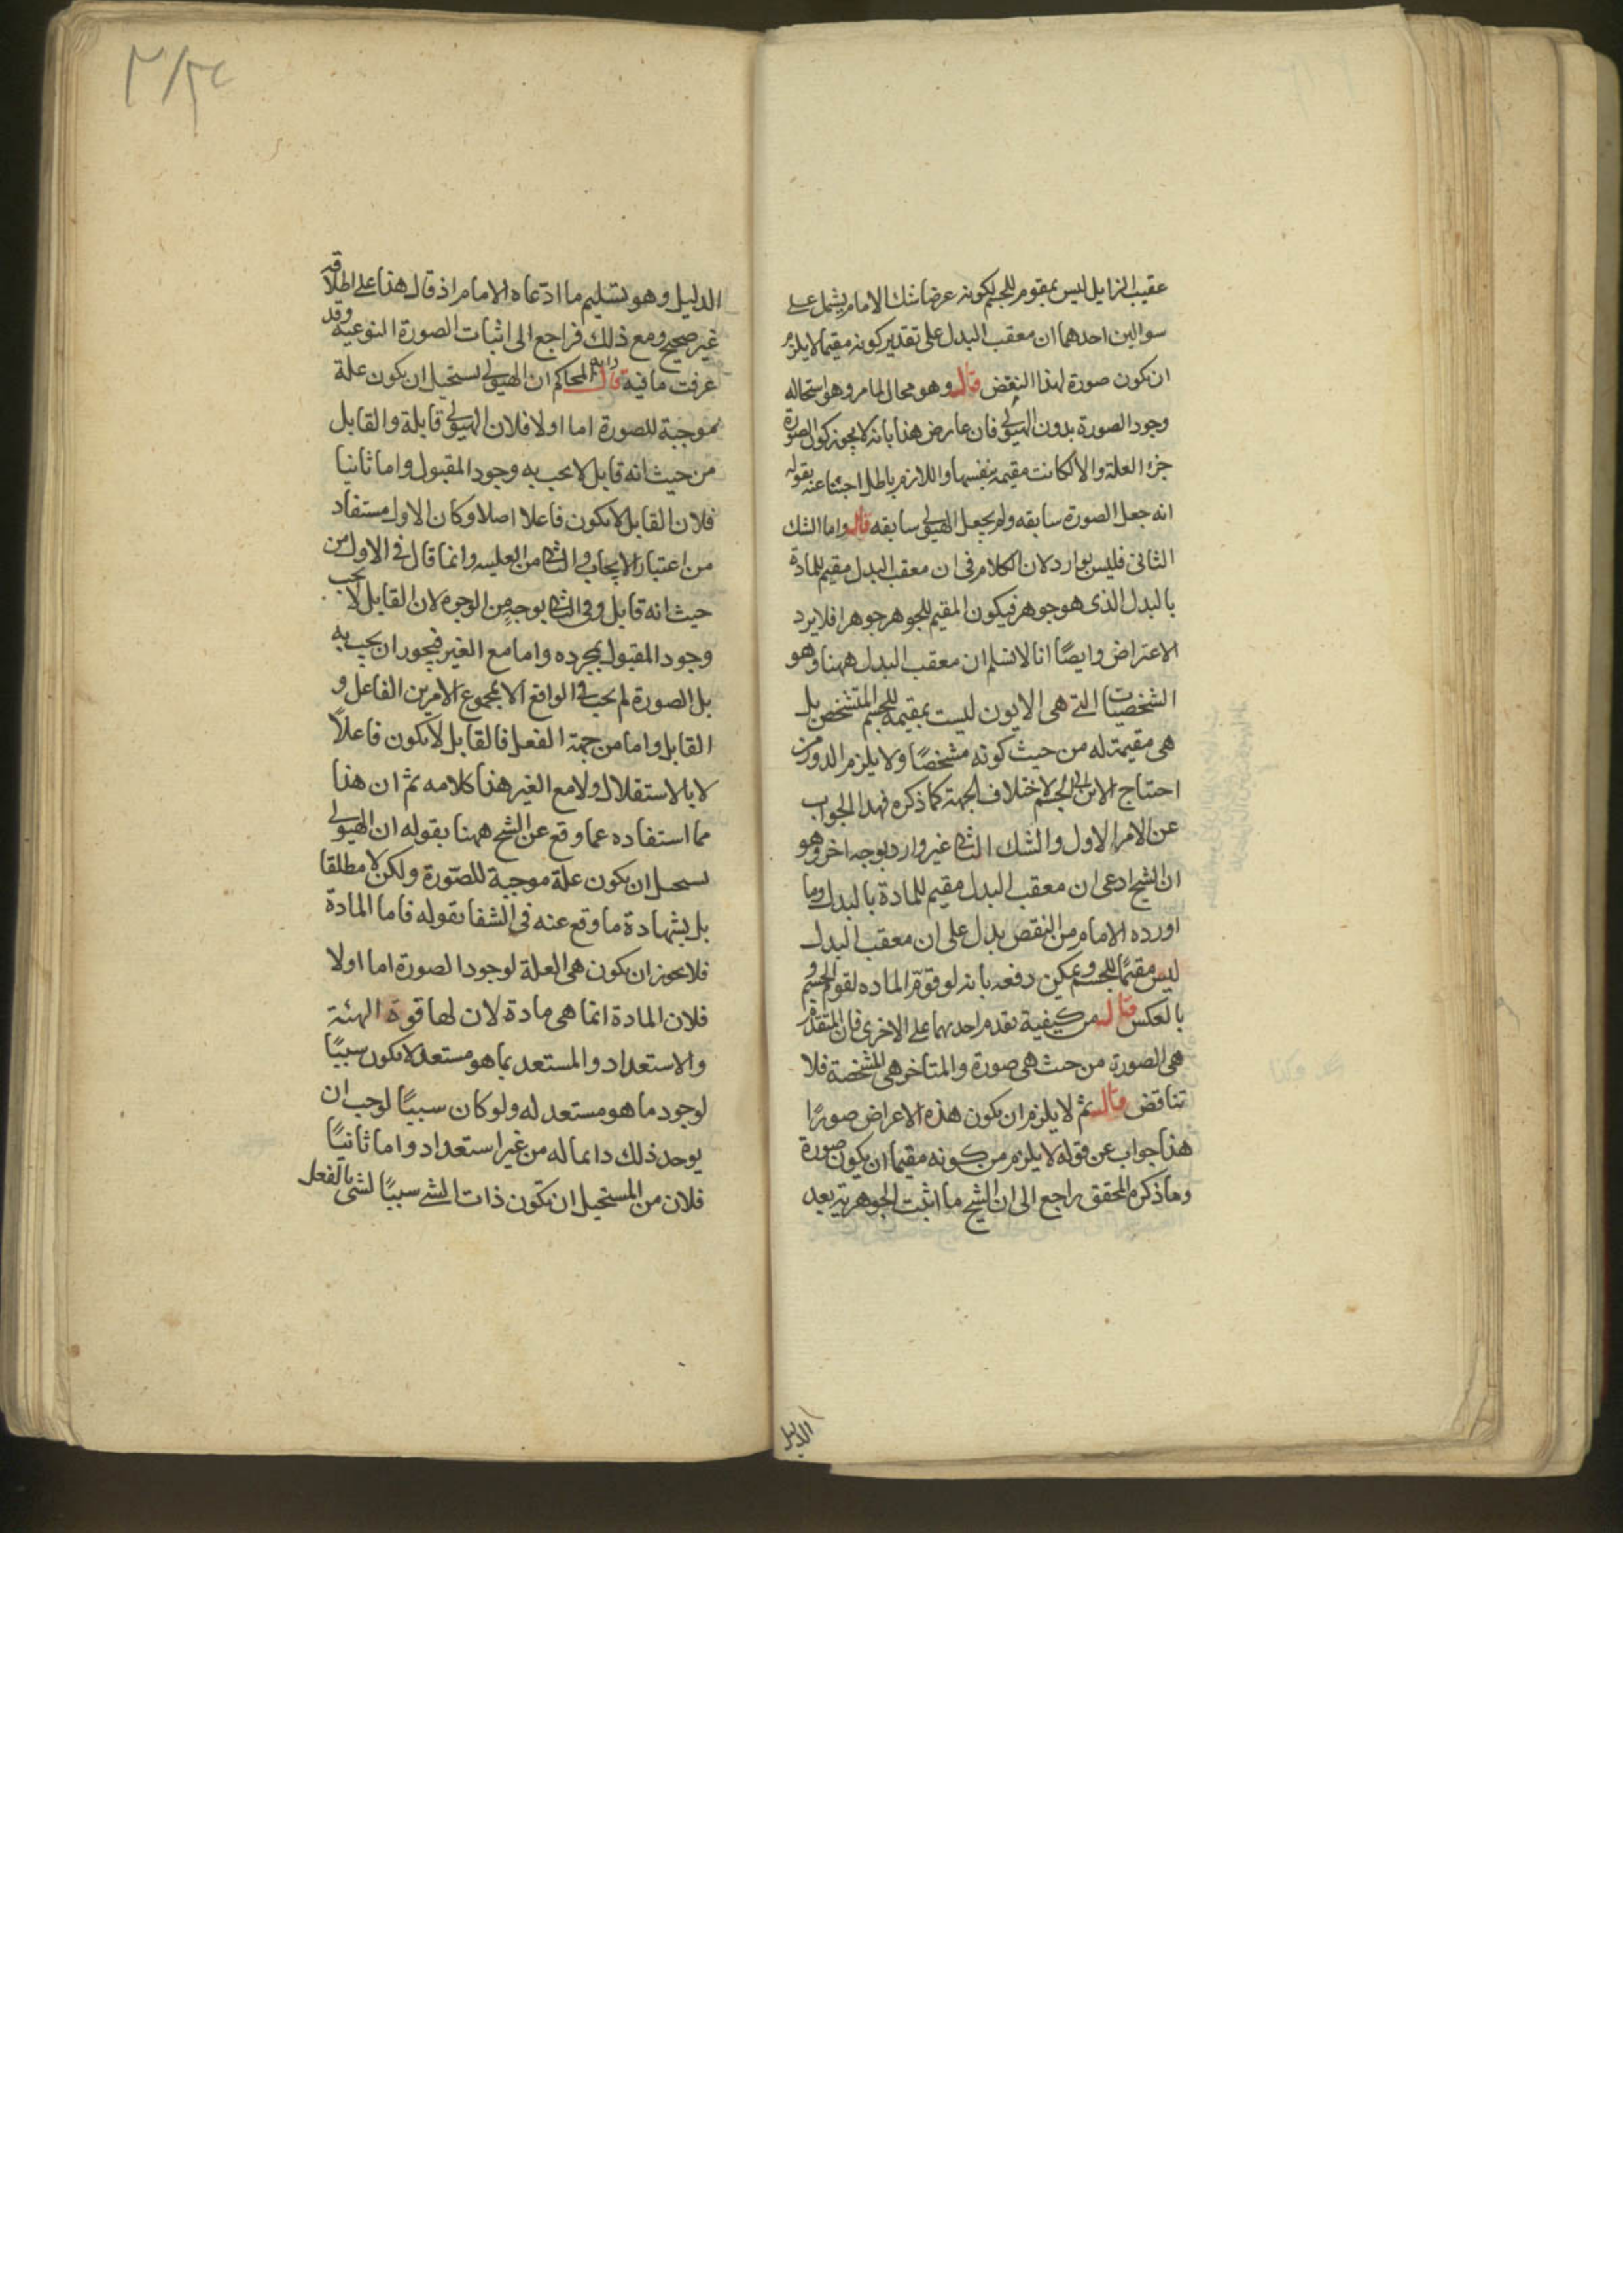 عقيب الزايل ليس بمقوم للجسم لكونه عرضا شك الامام يشمل على
سوالين احدهما ان معقب البدل على تقدير كونه مقيما لا يلزم
ان يكون صورة لهذا النقض قال وهو محال لما مر وهو استحاله
وجود الصورة بدون الهيولى فان عارض هذا بانه لا يجوز كون الصورة
جزء العلة والا لكانت مقيمة بنفسها واللازم باطل اجبنا عنه بقوله
انه جعل الصورة سابقه ولم يجعل الهيولى سابقه قال واما الشك
الثانى فليس بوارد لان الكلام فى ان معقب البدل مقيم للمادة
بالبدل الذى هو جوهر فيكون المقيم للجوهر جوهرا فلا يرد
الاعتراض وايضًا انا لا نسلم ان معقب البدل ههنا وهو
الشخصيات التى هى الايون ليست بمقيمة للجسم المتشخص بل
هى مقيمة له من حيث كونه مشخصًا ولا يلزم الدور من
احتاج الاين الى الجسم لاختلاف الجهة كما ذكره فهذا الجواب
عن الامر الاول والشك الثانى غير وارد بوجه اخر وهو
ان الشيخ ادعى ان معقب البدل مقيم للمادة بالبدل وما
اورده الامام من النقض يدل على ان معقب البدل
ليس مقيمًا للجسم ويمكن دفعه بانه لو قوّم الماده لقوم الجسم و
بالعكس قال من كيفية تقدم احديهما على الاخرى فان المتقدم
هى الصورة من حيث هى صورة والمتاخر هى المشخصة فلا
تناقض قال ثم لا يلزم ان يكون هذه الاعراض صورًا
هذا جواب عن قوله لا يلزم من كونه مقيما ان يكون صورة
وما ذكره المحقق راجع الى ان الشيخ ما اثبت الجوهرية بعد
الدليل
٣/٢٤
الدليل وهو تسليم ما ادّعاه الامام اذ قال هذا على اطلاقه
غير صحيح ومع ذلك فراجع الى اثبات الصورة النوعية وقد
عرفت ما فيه قال المحاكم ان الهيولى يستحيل ان يكون علة
موجبة للصورة اما اولا فلان الهيولى قابلة والقابل
من حيث انه قابل لا يجب به وجود المقبول واما ثانيا
فلان القابل لا يكون فاعلا اصلا وكان الاول مستفاد
من اعتبار الايجاب والثانى من العليه وانما قال فى الاول من
حيث انه قابل وفى الثانى بوجهٍ من الوجوه لان القابل لا يجب
وجود المقبول بمجرده واما مع الغير فيجوز ان يجب به
بل الصورة لم يجب فى الواقع الا بمجموع الامرين الفاعل و
القابل واما من جهة الفعل فالقابل لا يكون فاعلاً
لا بالاستقلال ولا مع الغير هذا كلامه ثم ان هذا
مما استفاده عما وقع عن الشيخ ههنا بقوله ان الهيولى
يستحيل ان يكون علة موجبة للصّورة ولكن لا مطلقا
بل بشهادة ما وقع عنه فى الشفا بقوله فاما المادة
فلا يجوز ان يكون هى العلة لوجود الصورة اما اولا
فلان المادة انما هى مادة لان لها قوة
والاستعداد والمستعد بما هو مستعد لا يكون سببًا
لوجود ما هو مستعد له ولو كان سببًا لوجب ان
يوجد ذلك دايما له من غير استعداد واما ثانيًا
فلان من المستحيل ان تكون ذات الشى سببًا لشى بالفعل